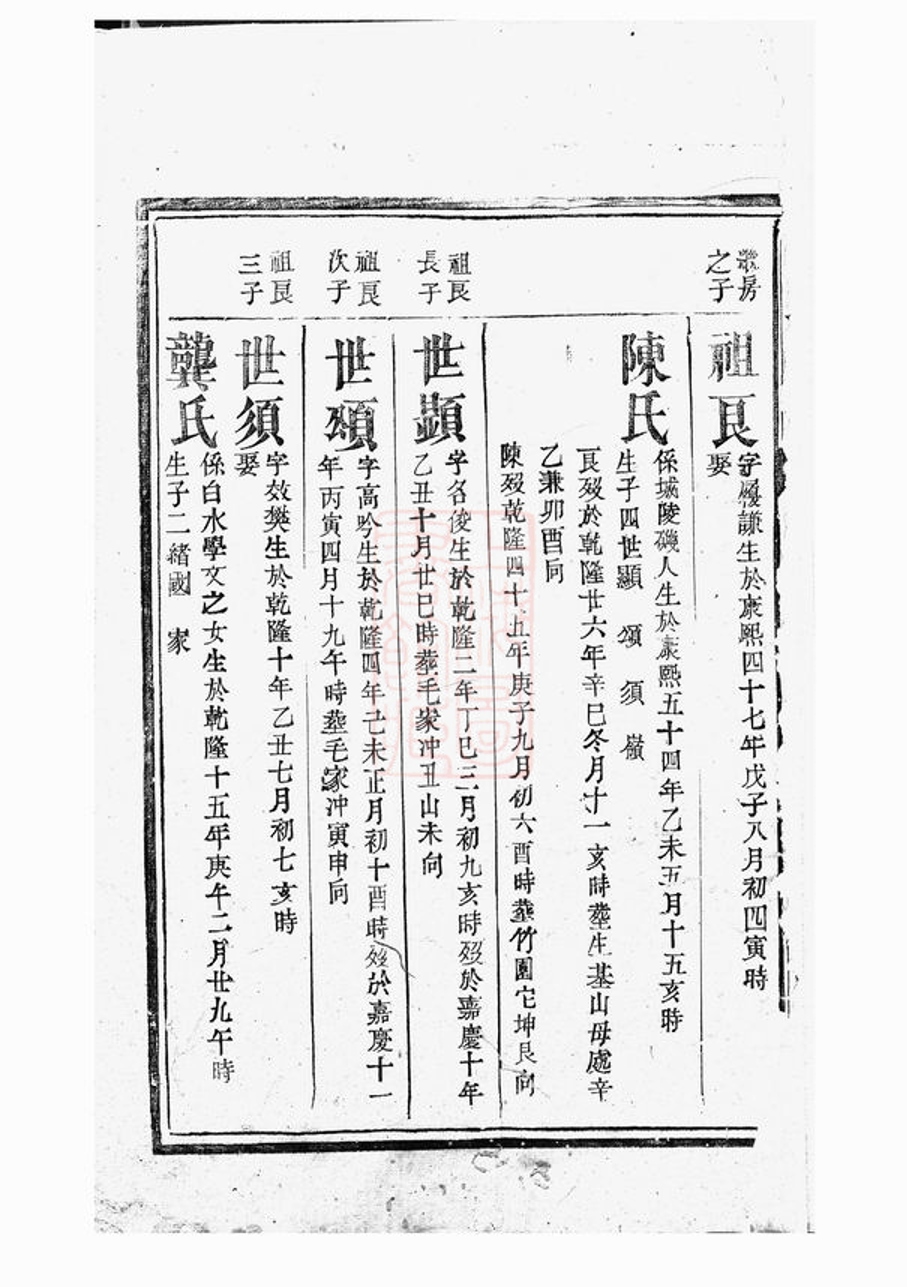 房
之子
祖良
字履謙生於康熙四十七年戊子八月初四寅時
娶
陳氏
係城陵磯人生於康熙五十四年乙未五月十五亥時
生子四世顯 頌 須 嶽
良歿於乾隆廿六年辛巳冬月十一亥時葬生基山母處辛
乙兼卯酉向
陳歿乾隆四十五年庚子九月初六酉時葬竹園它坤艮向
祖良
長子
世顯
字名俊生於乾隆二年丁巳三月初九亥時歿於嘉慶十年
乙丑十月廿巳時葬毛家冲丑山未向
祖良
次子
世頌
字高吟生於乾隆四年己未正月初十酉時歿於嘉慶十一
年丙寅四月十九午時葬毛家冲寅申向
祖良
三子
世須
字效樊生於乾隆十年乙丑七月初七亥時
娶
龔氏
係白水學文之女生於乾隆十五年庚午二月廿九午時
生子二緒國 家